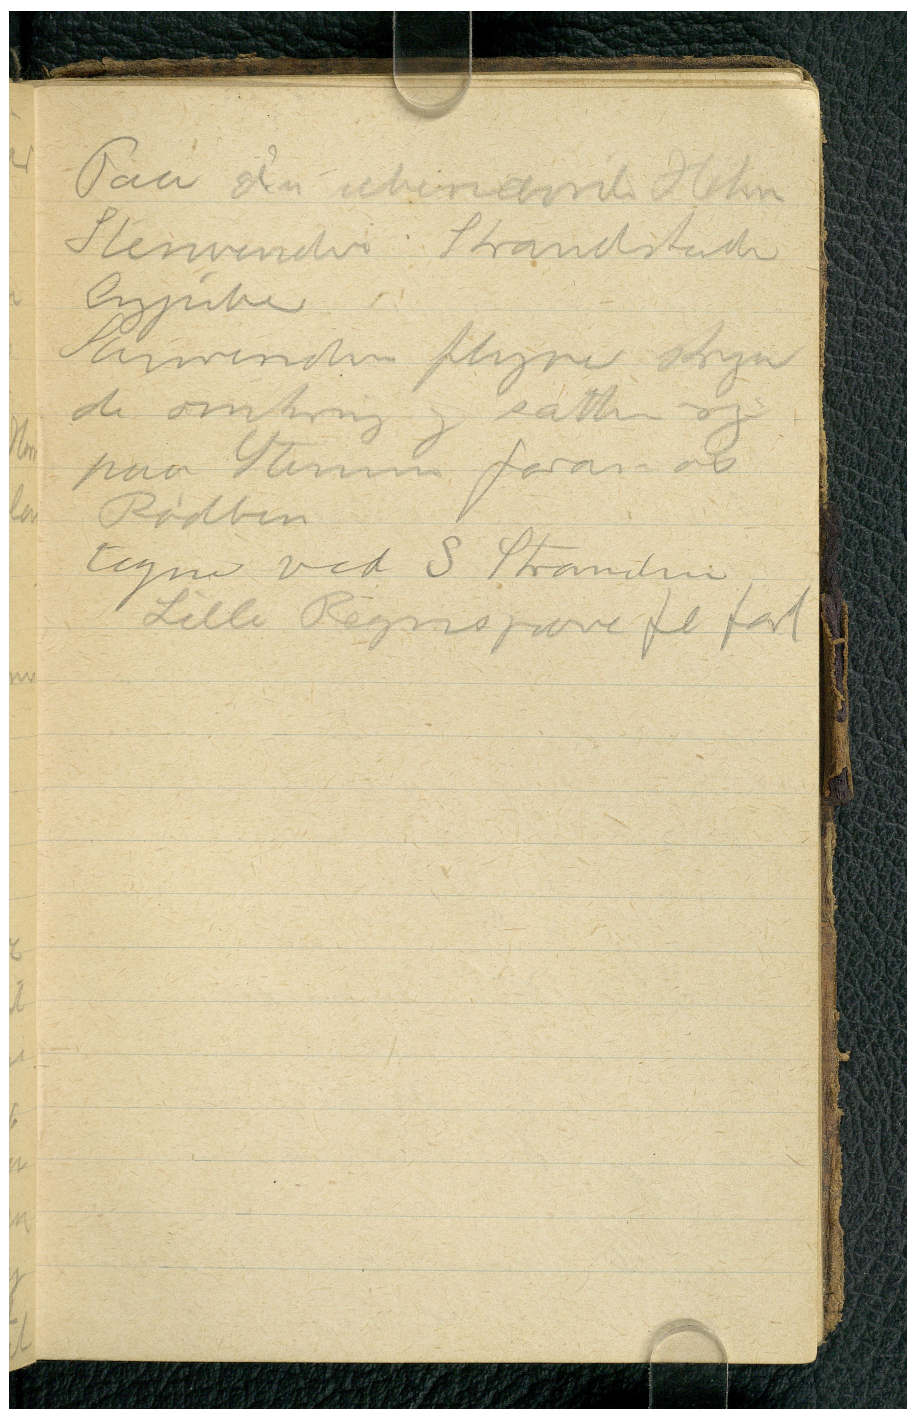 Paa den ubenævnte Holm
Stenvendere Strandskade
Erypibe
Stenvendere flyve skrige
de omkring og sætter sig
paa Stenene foran os
Rødben
tegne ved S Stranden
Lille Regnspove fl forb